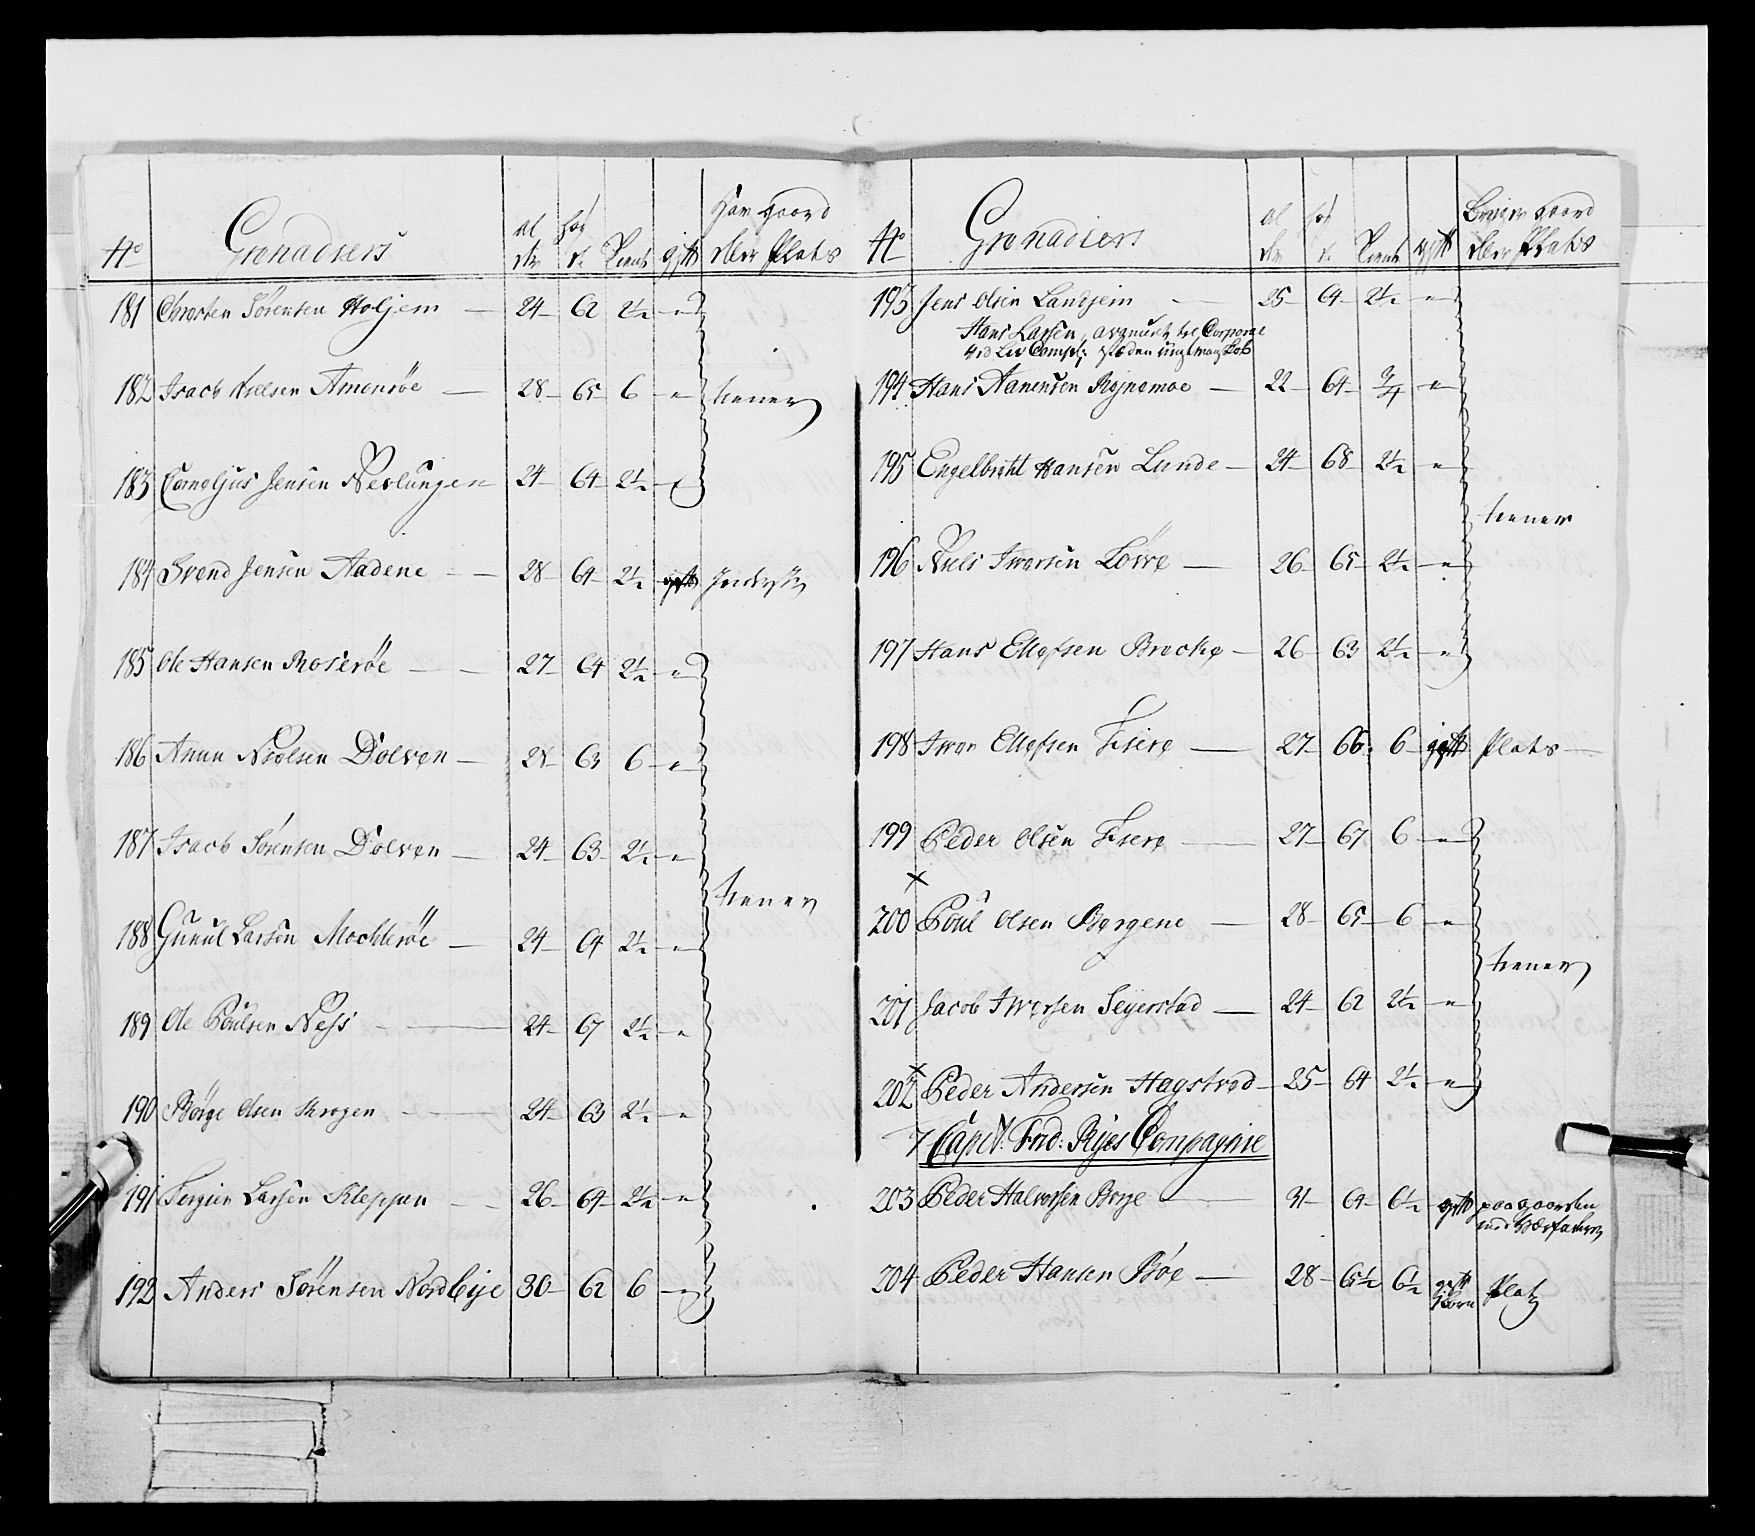 No Grenadiers al der hög de tient gift Har gaard eller Plats
181 Christen Sörensen Holjem — 24 — 62 2½ — "
182 Isach Nielsen Amonröe — 28 — 65 6 — " tiener
183 Corneljus Jensen Nevlungen 24 — 64 2½ — "
184 Svend Jensen Aadene — 28 — 64 2½ gift
185 Ole Hansen Roseröe — 27 — 64 2½ — "
186 Anun Nielsen Dolven — 28 — 63 6 — "
187 Isach Sörensen Dolven — 24 — 63 2½ — "
tiener
188 Gunul Larsen Mochleröe — 24 — 64 2½ — "
189 Ole Poulsen Ness — 24 — 67 2½ — "
190 Börge Olsen Krogen — 24 — 63 2½ — "
191 Jörgien Larsen Kleppan — 26 — 64 2½ — "
192 Anders Sörensen Nordbÿe 30 — 62 6 — "
No Grenadiers al der hög de tient gift Bruger gaard eller Plats
193 Jens Olsen Lanheim — 25 — 64 2½ — "
Hans Larsen, avanceret til Corporal
ved Liv Comp:
194 Hans Aanensen Røjnomoe — 22 — 64 ¾ — "
195 Engelbreht Hansen Lunde — 24 — 68 2½ — "
tiener
196 Niels Iwersen Lövve — 26 — 65 2½ — "
197 Hans Ellefsen Brecke — 26 — 63 2½ — "
198 Iwer Ellefsen Fierre — 27 — 66 6 gift Plats —
199 Peder Olsen Fierre — 27 — 67 6 — "
x
200 Poul Olsen Bergene — 28 — 65 6 — "
tiener
201 Jacob Iwersen Seyerstad — 24 — 62 2½ — "
x
202 Peder Andersen Hagstved — 25 — 64 2½ — "
7 Capt. Frid: Rÿes Compagnie
203 Peder Halvorsen Berge — 31 — 64 6½ gift paa gaarden
med Værfaderen
204 Peder Hansen Böe — 28 — 65½ 6½ gift Platz
1 Barn